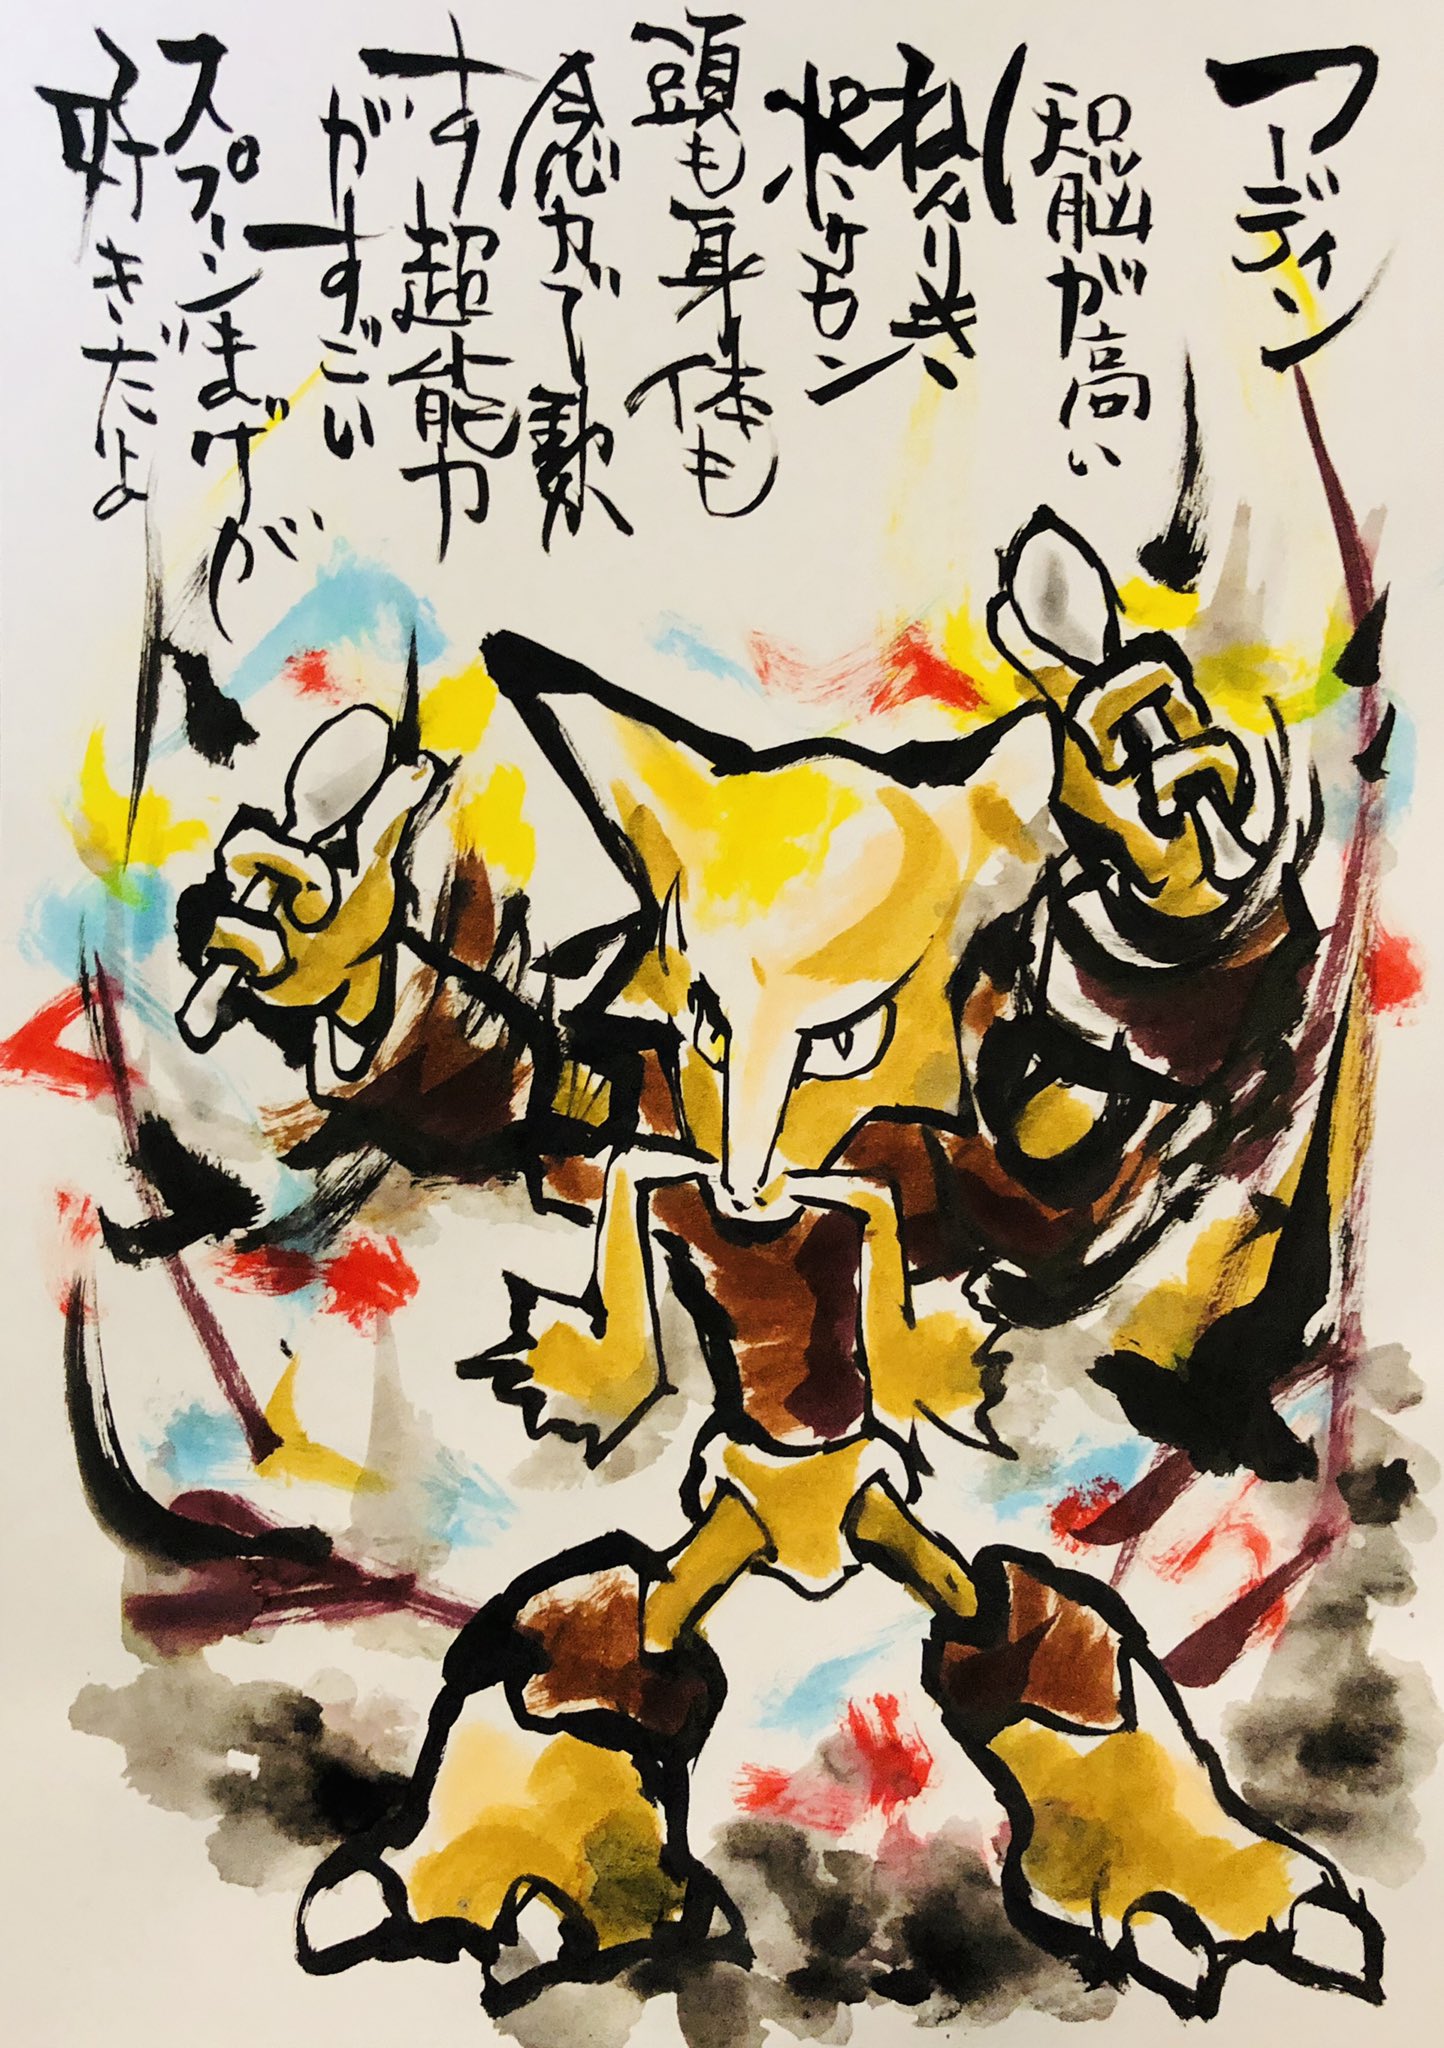 フーディン
知脳が高い
ねんりき
ポケモン
頭も身体も
念力で動
す超能力
がすごい
スプーンまげが
好きだよ